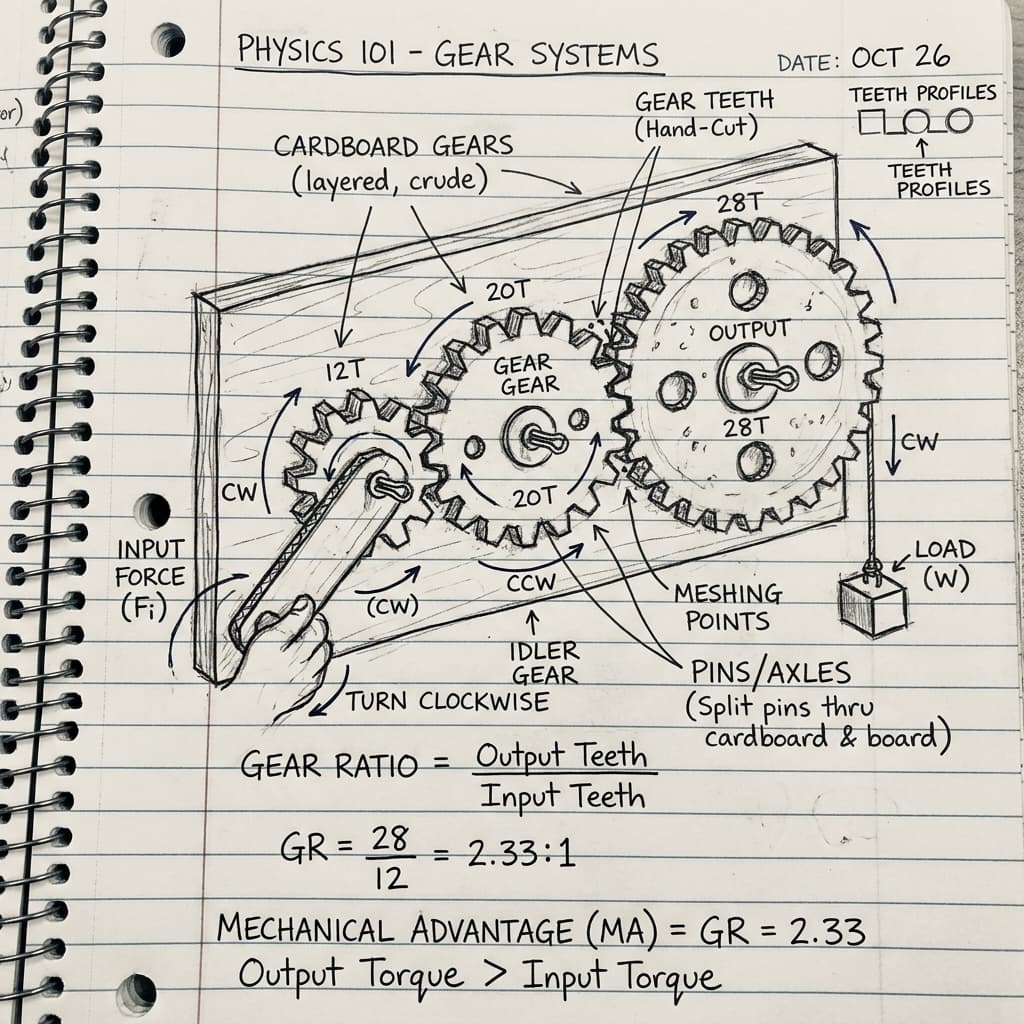 PHYSICS 101 - GEAR SYSTEMS
DATE: OCT 26
or)
TEETH PROFILES
TEETH
PROFILES
GEAR TEETH
(Hand-Cut)
CARDBOARD GEARS
(layered, crude)
28T
20T
12T
OUTPUT
28T
GEAR
GEAR
20T
CW
CW
INPUT
FORCE
(Fi)
(CW)
CCW
LOAD
(W)
MESHING
POINTS
IDLER
GEAR
PINS/AXLES
(Split pins thru
cardboard & board)
TURN CLOCKWISE
GEAR RATIO = Output Teeth
Input Teeth
GR = 28 = 2.33:1
12
MECHANICAL ADVANTAGE (MA) = GR = 2.33
Output Torque > Input Torque